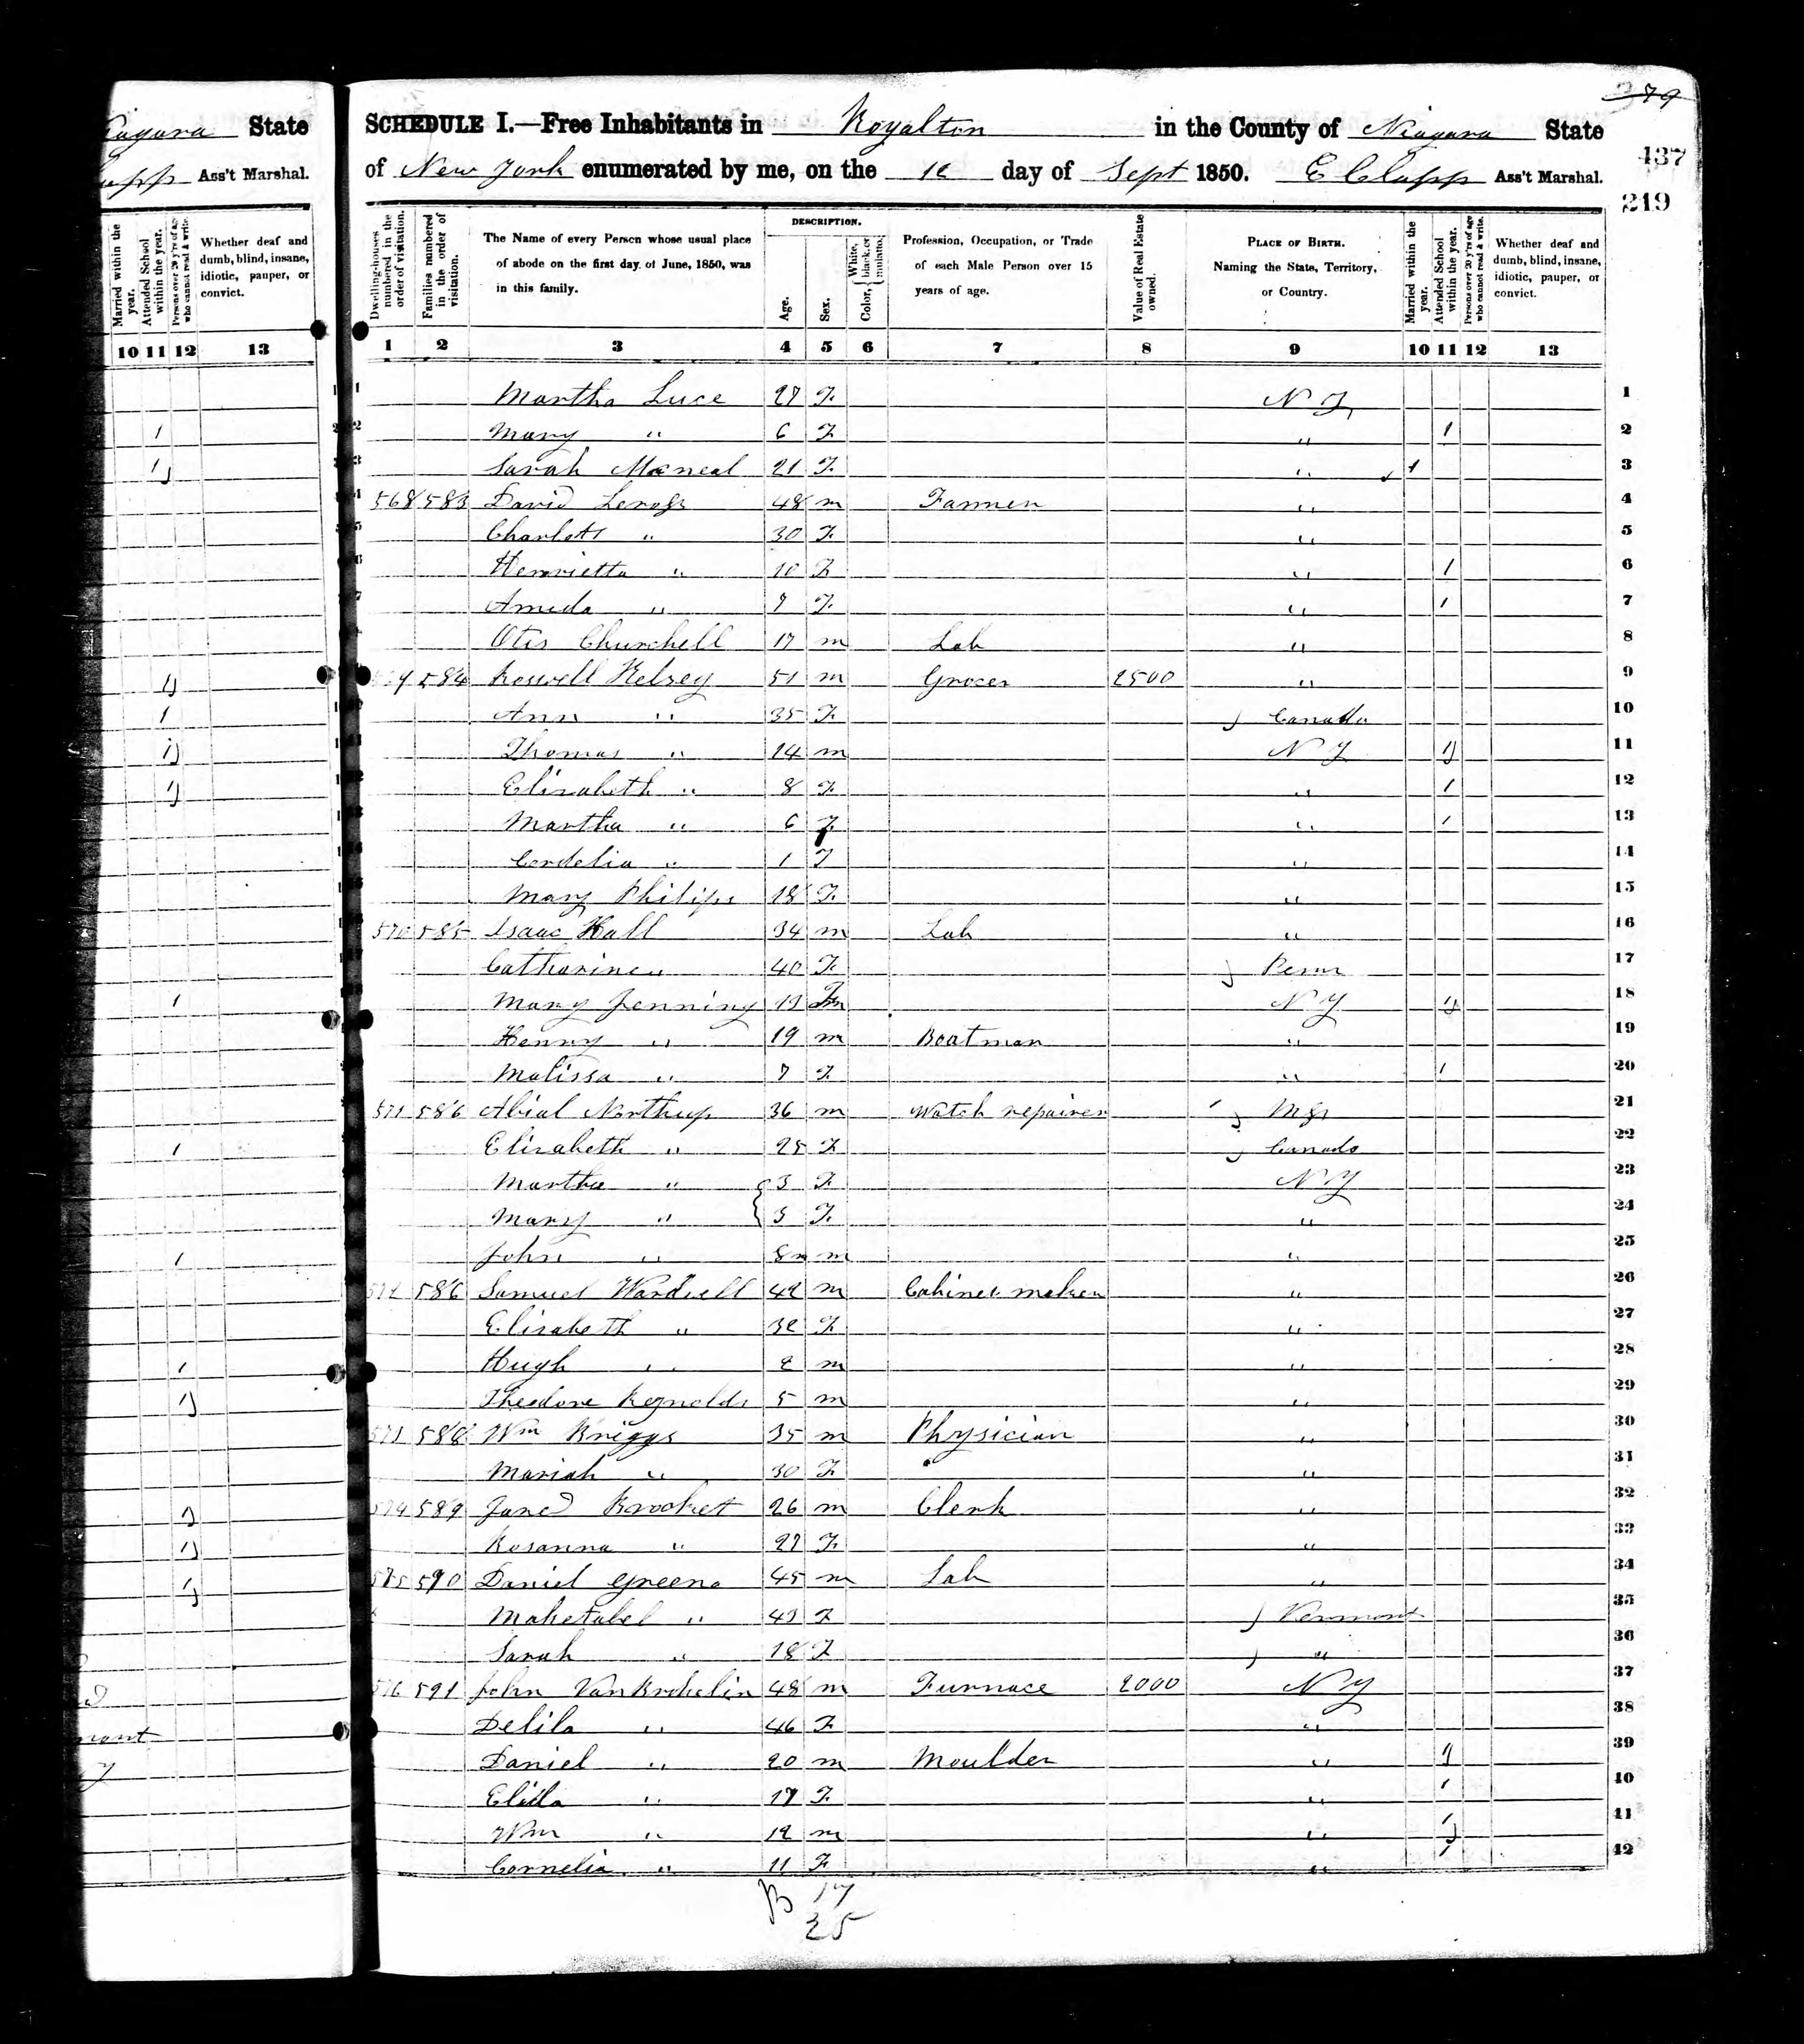 79
SCHEDULE I.—Free Inhabitants in Royalton in the County of Niagara State
of New York enumerated by me, on the 12 day of Sept 1850. E Clapp Ass't Marshal.
437
219
agara State
app Ass't Marshal.
Married within the year.
Attended School within the year.
Persons over 20 y'rs of age who cannot read & write.
Whether deaf and dumb, blind, insane, idiotic, pauper, or convict.
10 11 12 13
Dwelling-houses numbered in the order of visitation.
Families numbered in the order of visitation.
The Name of every Person whose usual place of abode on the first day of June, 1850, was in this family.
DESCRIPTION.
Age.
Sex.
Color, White, black, or mulatto.
Profession, Occupation, or Trade of each Male Person over 15 years of age.
Value of Real Estate owned.
PLACE OF BIRTH. Naming the State, Territory, or Country.
Married within the year.
Attended School within the year.
Persons over 20 y'rs of age who cannot read & write.
Whether deaf and dumb, blind, insane, idiotic, pauper, or convict.
1 2 3 4 5 6 7 8 9 10 11 12 13
1 Martha Luce 27 F N Y 1
2 Mary " 6 F " 1 2
3 Sarah Mcneal 21 F " 1 3
568 583 David 48 m Farmer " 4
Charlott " 30 F " 5
Henrietta " 10 F " 1 6
Ameda " 7 F " 1 7
Otis Churchell 17 m Lab " 8
584 Roswell Kelsey 51 m Grocer 2500 " 9
Ann " 35 F Canada 10
Thomas " 14 m N Y 1 11
Elizabeth " 8 F " 1 12
Martha " 6 F " 1 13
Cordelia " 1 F " 14
Mary Philips 18 F " 15
570 585 Isaac Hall 34 m Lab " 16
Catharine " 40 F Penn 17
Mary Jenning 13 F N Y 1 18
Henry " 19 m Boatman " 19
Malissa " 7 F " 1 20
571 586 Abial Northup 36 m Watch repairer Mss 21
Elizabeth " 25 F Canada 22
Martha " 3 F N Y 23
Mary " 3 F " 24
John " 8m m " 25
572 586 Samuel Wardwell 42 m Cabinet maker " 26
Elizabeth " 32 F " 27
Hugh " 2 m " 28
Theodore Reynolds 5 m " 29
573 588 Wm Briggs 35 m Physician " 30
Mariah " 30 F " 31
574 589 Jared 26 m Clerk " 32
Rosanna " 27 F " 33
575 590 Daniel Greene 45 m Lab " 34
Mahetabel " 43 F Vermont 35
Sarah " 18 F " 36
576 591 John 48 m Furnace 2000 N Y 37
Delila " 46 F " 38
Daniel " 20 m Moulder " 1 39
" 17 F " 1 40
Wm " 12 m " 1 41
Cornelia " 11 F " 1 42
B 17
25